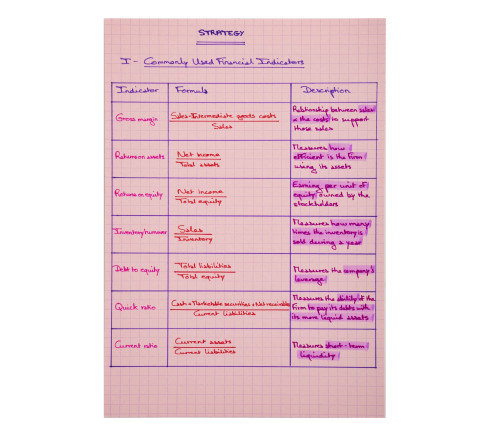 STRATEGY
I - Commonly Used Financial Indicators
Indicator Formula Description
Gross margin
Sales-Intermediate goods costs
Sales
Relationship between sales
& the costs to support
those sales
Return on assets
Net income
Total assets
Measures how
efficient is the firm
using its assets
Return on equity
Net income
Total equity
Earning per unit of
equity owned by the
stockholders
Inventory turnover
Sales
Inventory
Measures how many
times the inventory is
sold during a year
Debt to equity
Total liabilities
Total equity
Measures the company's
leverage
Quick ratio
Cash + Marketable securities + Net receivables
Current liabilities
Measures the ability of the
firm to pay its debts with
its more liquid assets
Current ratio
Current assets
Current liabilities
Measures short-term
liquidity